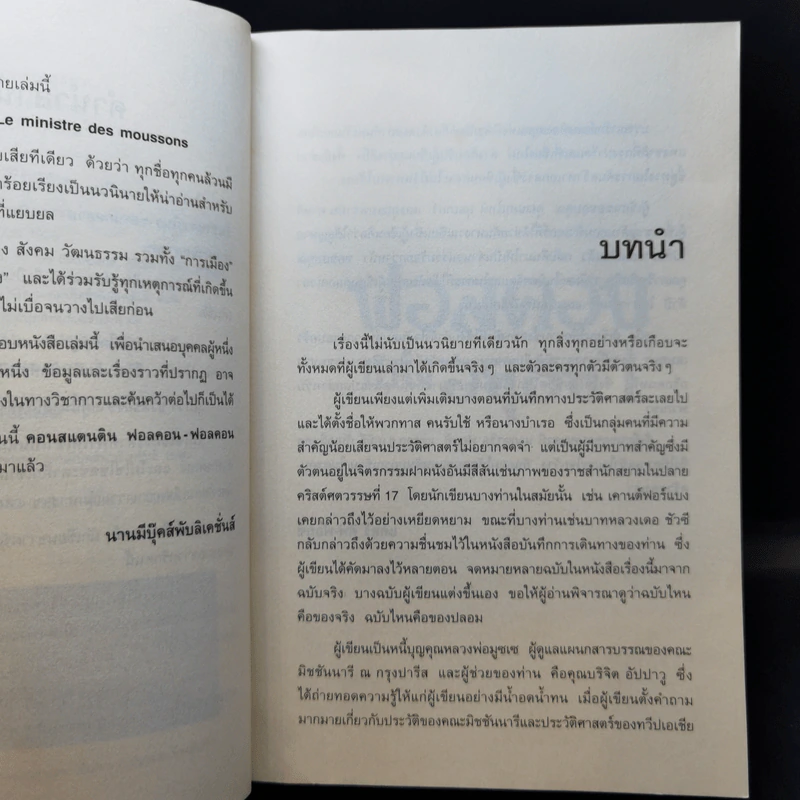 ายเล่มนี้
Le ministre des moussons
ยเสียทีเดียว ด้วยว่า ทุกชื่อทุกคนล้วนมี
ร้อยเรียงเป็นนวนินายให้น่าอ่านสำหรับ
ที่แยบยล
ง สังคม วัฒนธรรม รวมทั้ง "การเมือง"
ง" และได้ร่วมรับรู้ทุกเหตุการณ์ที่เกิดขึ้น
ไม่เบื่อจนวางไปเสียก่อน
อบหนังสือเล่มนี้ เพื่อนำเสนอบุคคลผู้หนึ่ง
หนึ่ง ข้อมูลและเรื่องราวที่ปรากฏ อาจ
งในทางวิชาการและค้นคว้าต่อไปก็เป็นได้
นนี้ คอนสแตนติน ฟอลคอน - ฟอลคอน
มาแล้ว
นานมีบุ๊คส์พับลิเคชั่นส์
บทนำ
เรื่องนี้ไม่นับเป็นนวนิยายทีเดียวนัก ทุกสิ่งทุกอย่างหรือเกือบจะ
ทั้งหมดที่ผู้เขียนเล่ามาได้เกิดขึ้นจริงๆ และตัวละครทุกตัวมีตัวตนจริงๆ
ผู้เขียนเพียงแต่เพิ่มเติมบางตอนที่บันทึกทางประวัติศาสตร์ละเลยไป
และได้ตั้งชื่อให้พวกทาส คนรับใช้ หรือนางบำเรอ ซึ่งเป็นกลุ่มคนที่มีความ
สำคัญน้อยเสียจนประวัติศาสตร์ไม่อยากจดจำ แต่เป็นผู้มีบทบาทสำคัญซึ่งมี
ตัวตนอยู่ในจิตรกรรมฝาผนังอันมีสีสันเช่นภาพของราชสำนักสยามในปลาย
คริสต์ศตวรรษที่ 17 โดยนักเขียนบางท่านในสมัยนั้น เช่น เคานต์ฟอร์แบง
เคยกล่าวถึงไว้อย่างเหยียดหยาม ขณะที่บางท่านเช่นบาทหลวงเดอ ชัวซี
กลับกล่าวถึงด้วยความชื่นชมไว้ในหนังสือบันทึกการเดินทางของท่าน ซึ่ง
ผู้เขียนได้คัดมาลงไว้หลายตอน จดหมายหลายฉบับในหนังสือเรื่องนี้มาจาก
ฉบับจริง บางฉบับผู้เขียนแต่งขึ้นเอง ขอให้ผู้อ่านพิจารณาดูว่าฉบับไหน
คือของจริง ฉบับไหนคือของปลอม
ผู้เขียนเป็นหนี้บุญคุณหลวงพ่อมูซเซ ผู้ดูแลแผนกสารบรรณของคณะ
มิชชันนารี ณ กรุงปารีส และผู้ช่วยของท่าน คือคุณบริจิต อัปปาวู ซึ่ง
ได้ถ่ายทอดความรู้ให้แก่ผู้เขียนอย่างมีน้ำอดน้ำทน เมื่อผู้เขียนตั้งคำถาม
มากมายเกี่ยวกับประวัติของคณะมิชชันนารีและประวัติศาสตร์ของทวีปเอเชีย